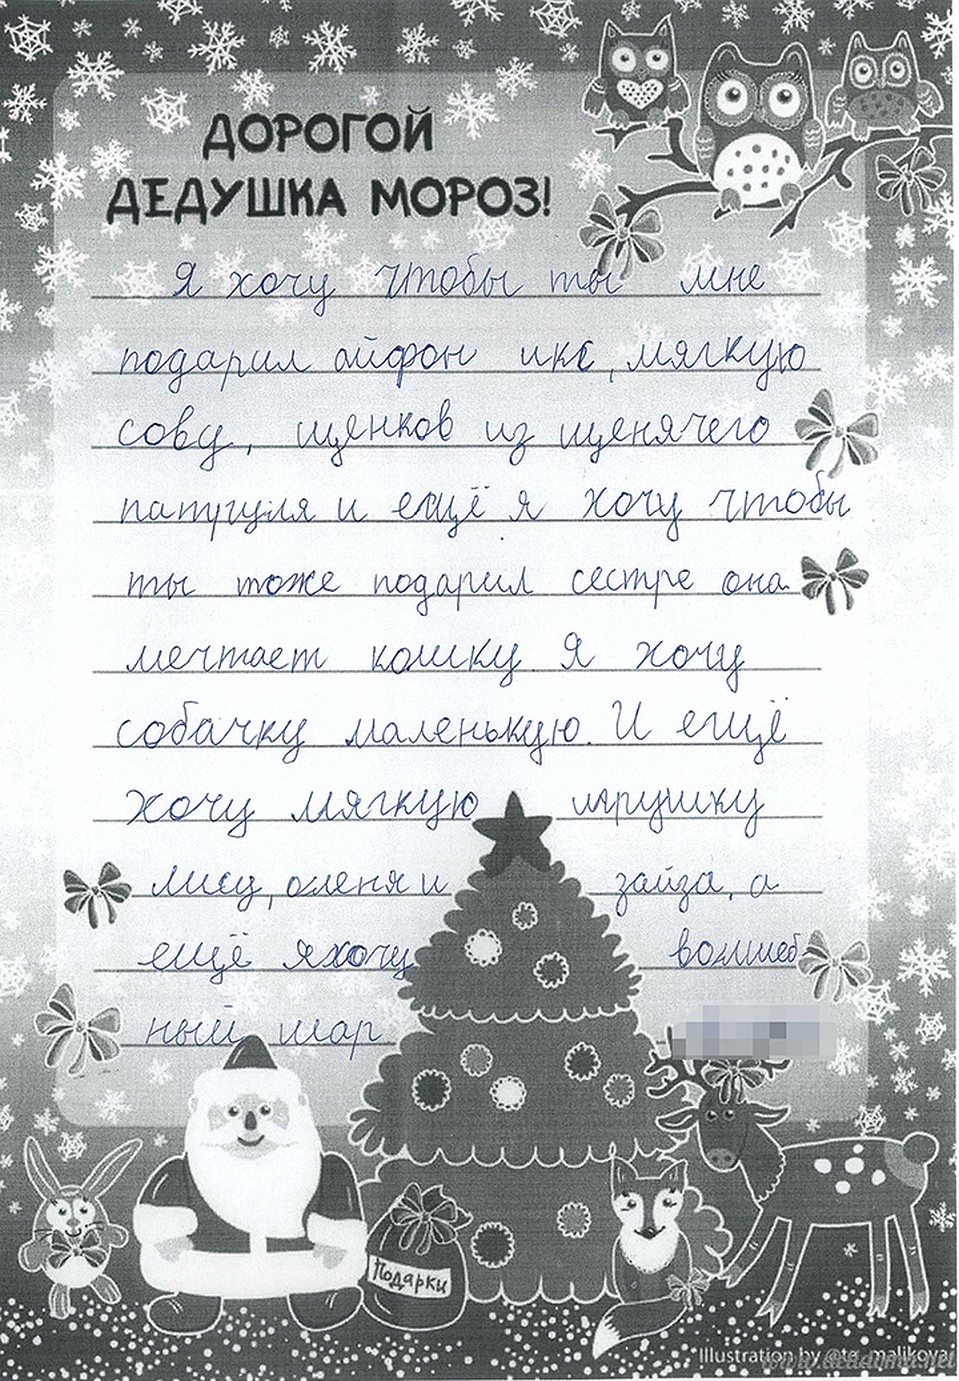 ДОРОГОЙ
ДЕДУШКА МОРОЗ!
Я хочу чтобы ты мне
подарил айфон икс, мягкую
сову, щенков из щенячего
патруля и ещё я хочу чтобы
ты тоже подарил сестре она
мечтает кошку. Я хочу
собачку маленькую. И ещё
хочу мягкую игрушку
лису, оленя и зайза, а
ещё я хочу волшеб
ный шар
Подарки
Illustration by @ta_malikova